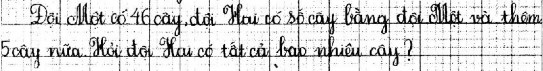 Đội Một có 46 cây, đội Hai có số cây bằng đội Một và thêm
5 cây nữa. Hỏi đội Hai có tất cả bao nhiêu cây?